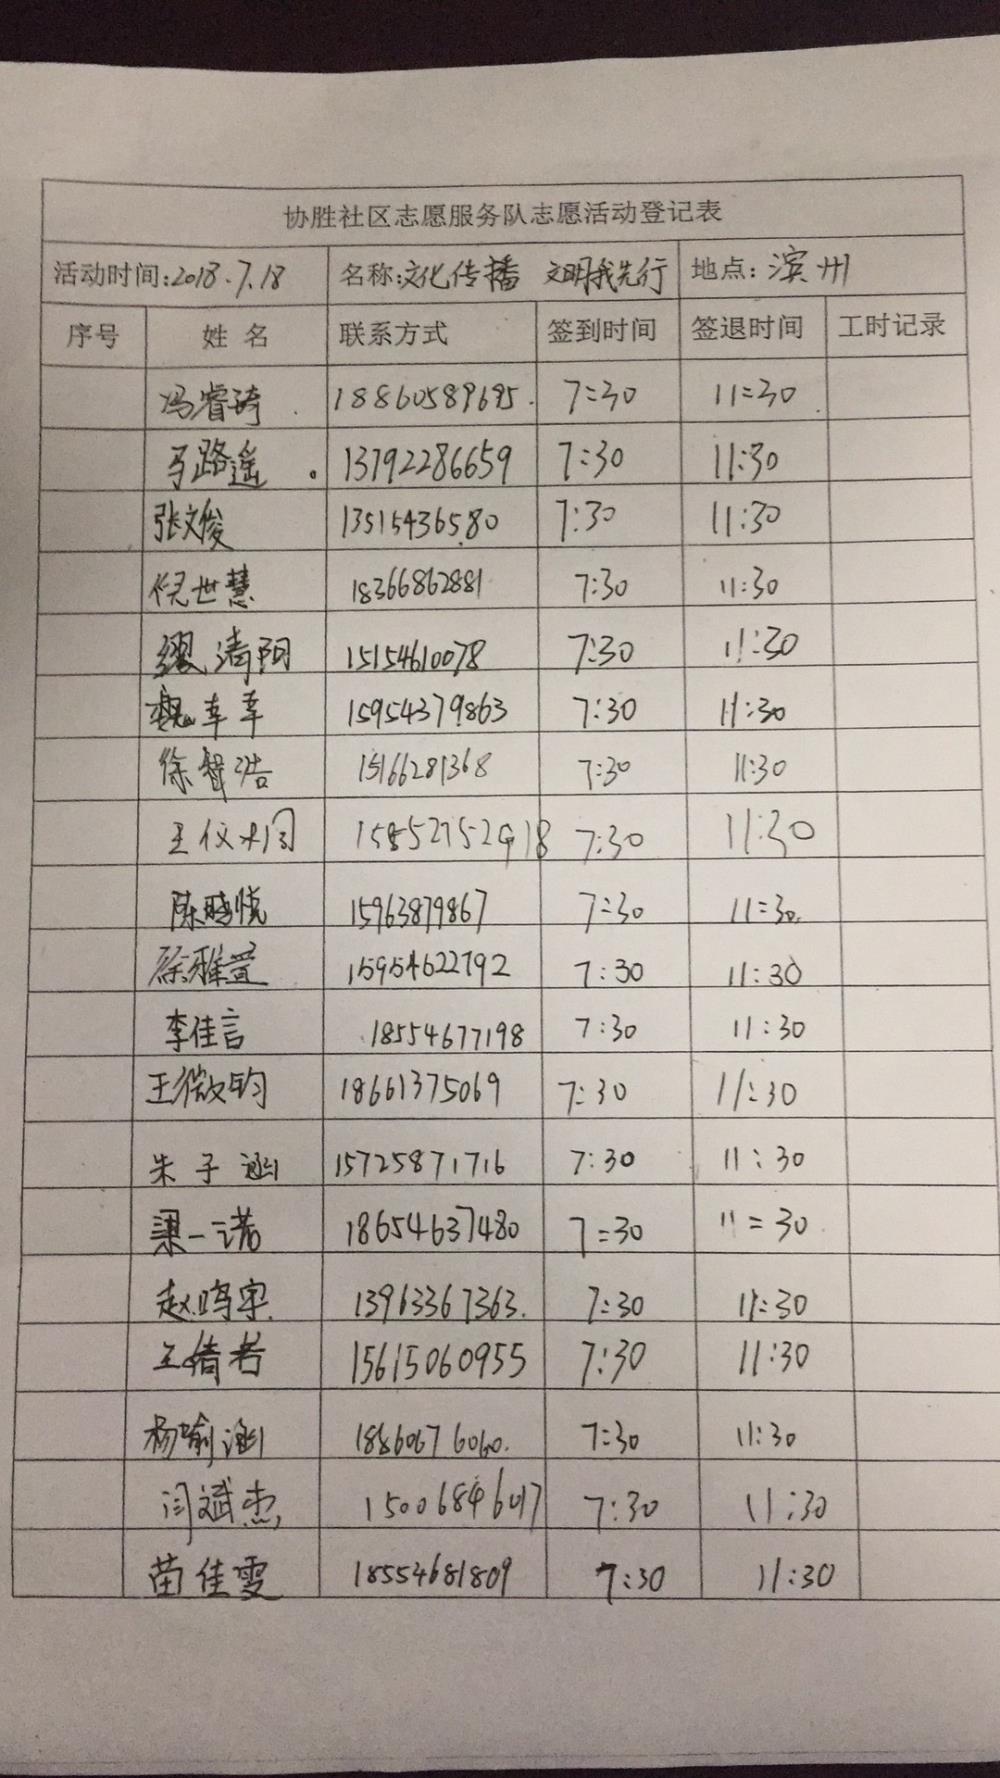 协胜社区志愿服务队志愿活动登记表
活动时间:2018.7.18 名称:文化传播 文明我先行 地点:滨州
序号 姓名 联系方式 签到时间 签退时间 工时记录
冯睿琦 18860589695. 7:30 11:30
马路遥 13792286659 7:30 11:30
张文俊 13515436580 7:30 11:30
倪世慧 18366862881 7:30 11:30
缪清阳 15154610078 7:30 11:30
魏幸幸 15954379863 7:30 11:30
徐智浩 15166281368 7:30 11:30
王仪 7:30 11:30
陈晓悦 15963879867 7:30 11:30
徐雅萱 15954622792 7:30 11:30
李佳言 18554677198 7:30 11:30
王微钧 18661375069 7:30 11:30
朱子涵 15725871716 7:30 11:30
梁一诺 18654637480 7:30 11:30
赵鸣宇 13963367363. 7:30 11:30
王倩若 15615060955 7:30 11:30
杨喻涵 18860676060. 7:30 11:30
闫斌杰 15006846017 7:30 11:30
苗佳雯 18554681809 7:30 11:30